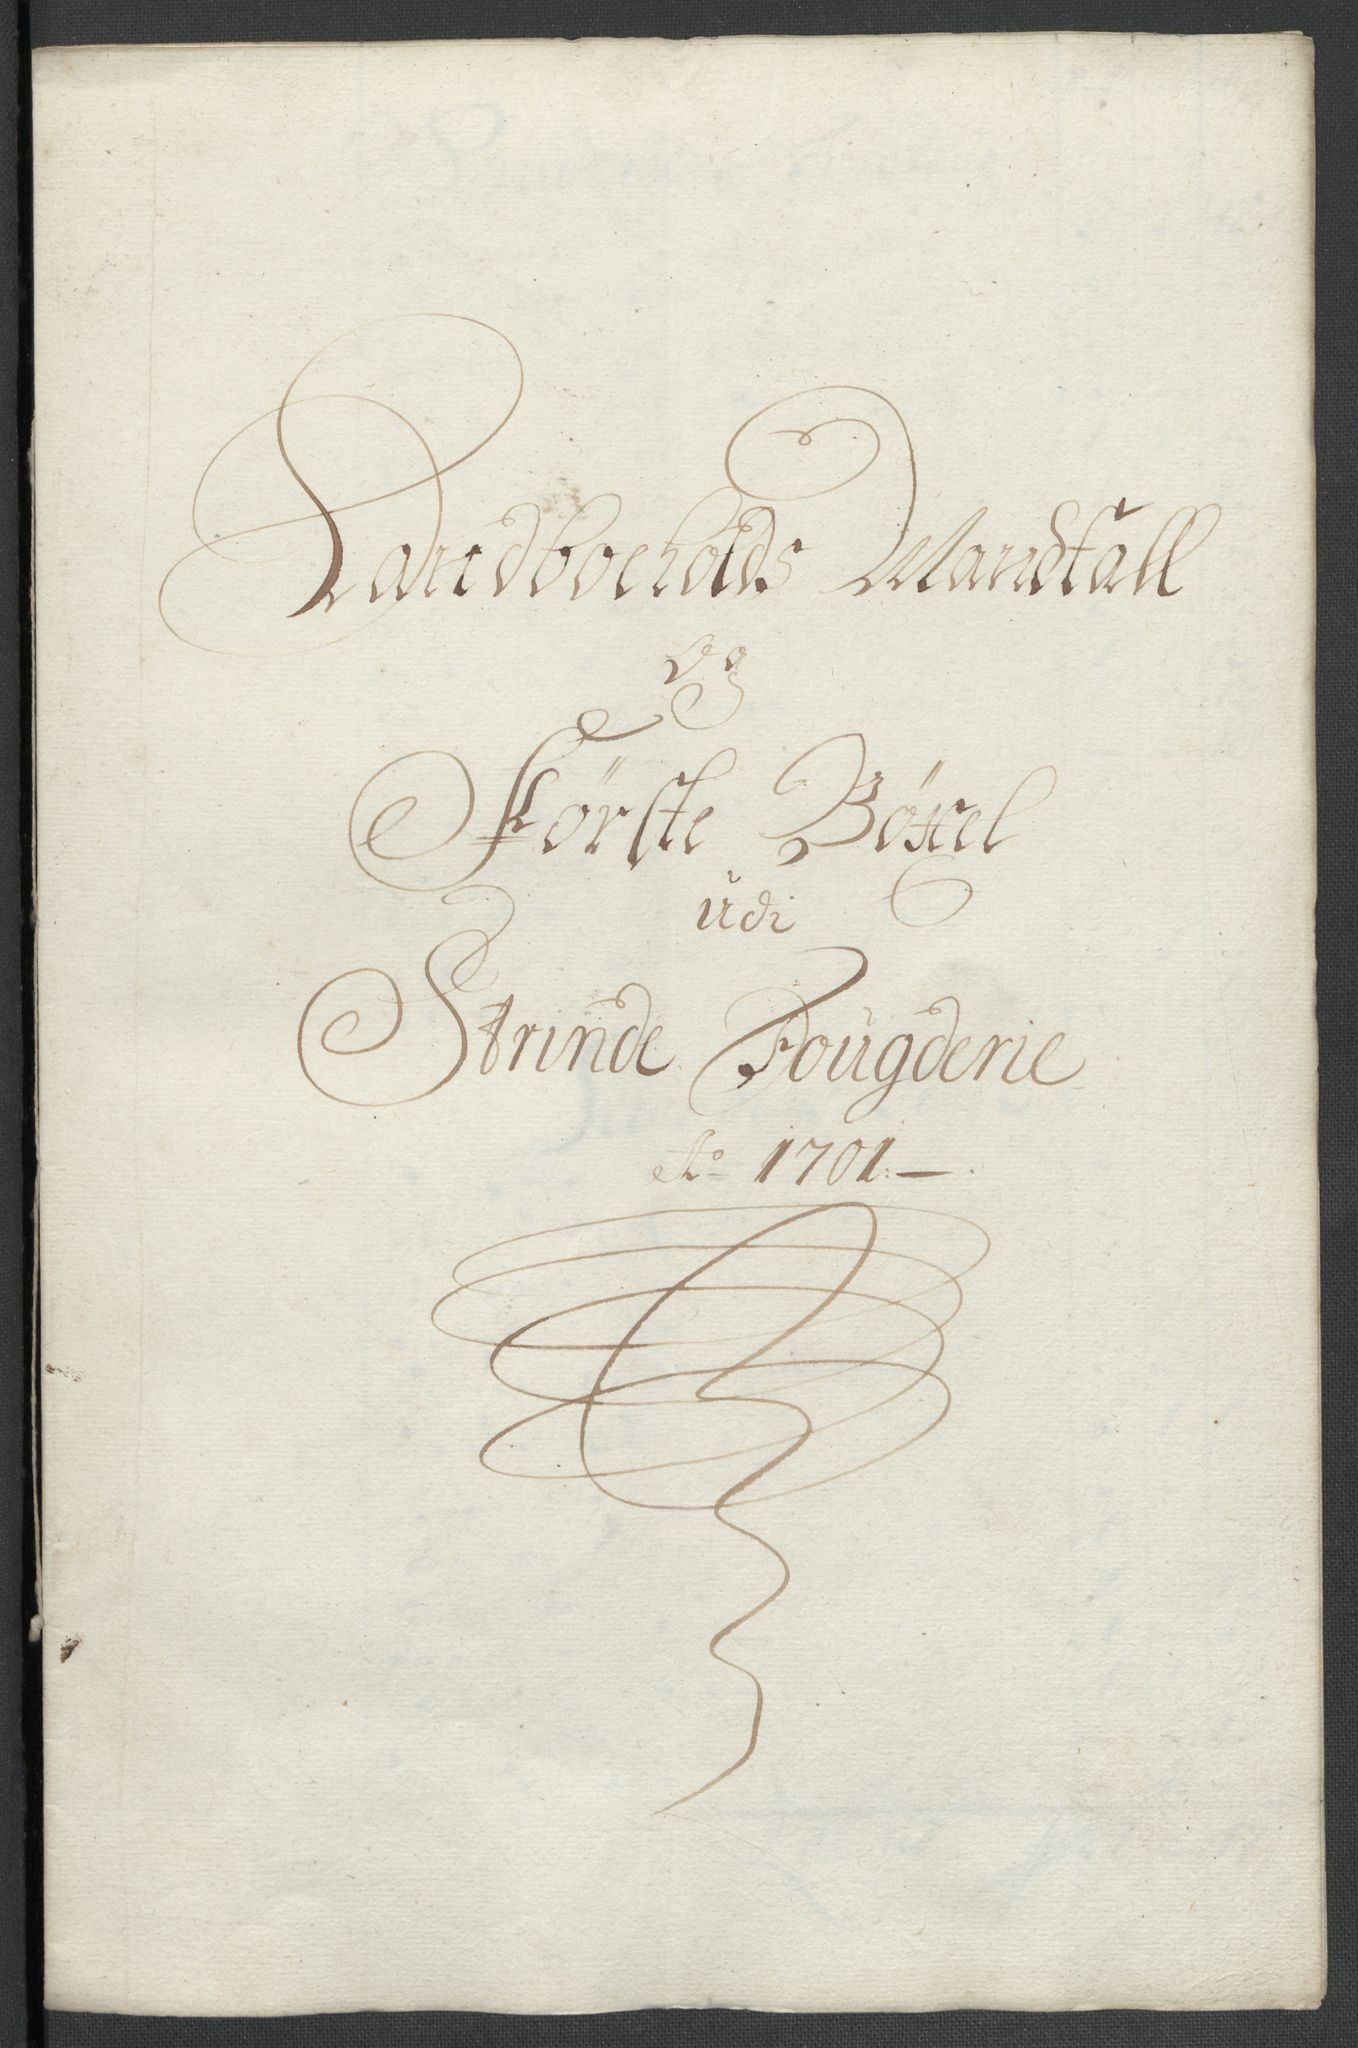 Landboeholds Mandtall
og
Förste Böxel
udi
Strinde Fougderie
Ao 1701.—